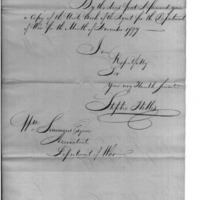 By the these Post I present you
a Copy of the Stock Book of the Agent for the Department
of War for the Month of December 1799
I am
Respectfully
Sir
Your very Humble Servant
Wm Simmons Esquire
Accountant
Department of War